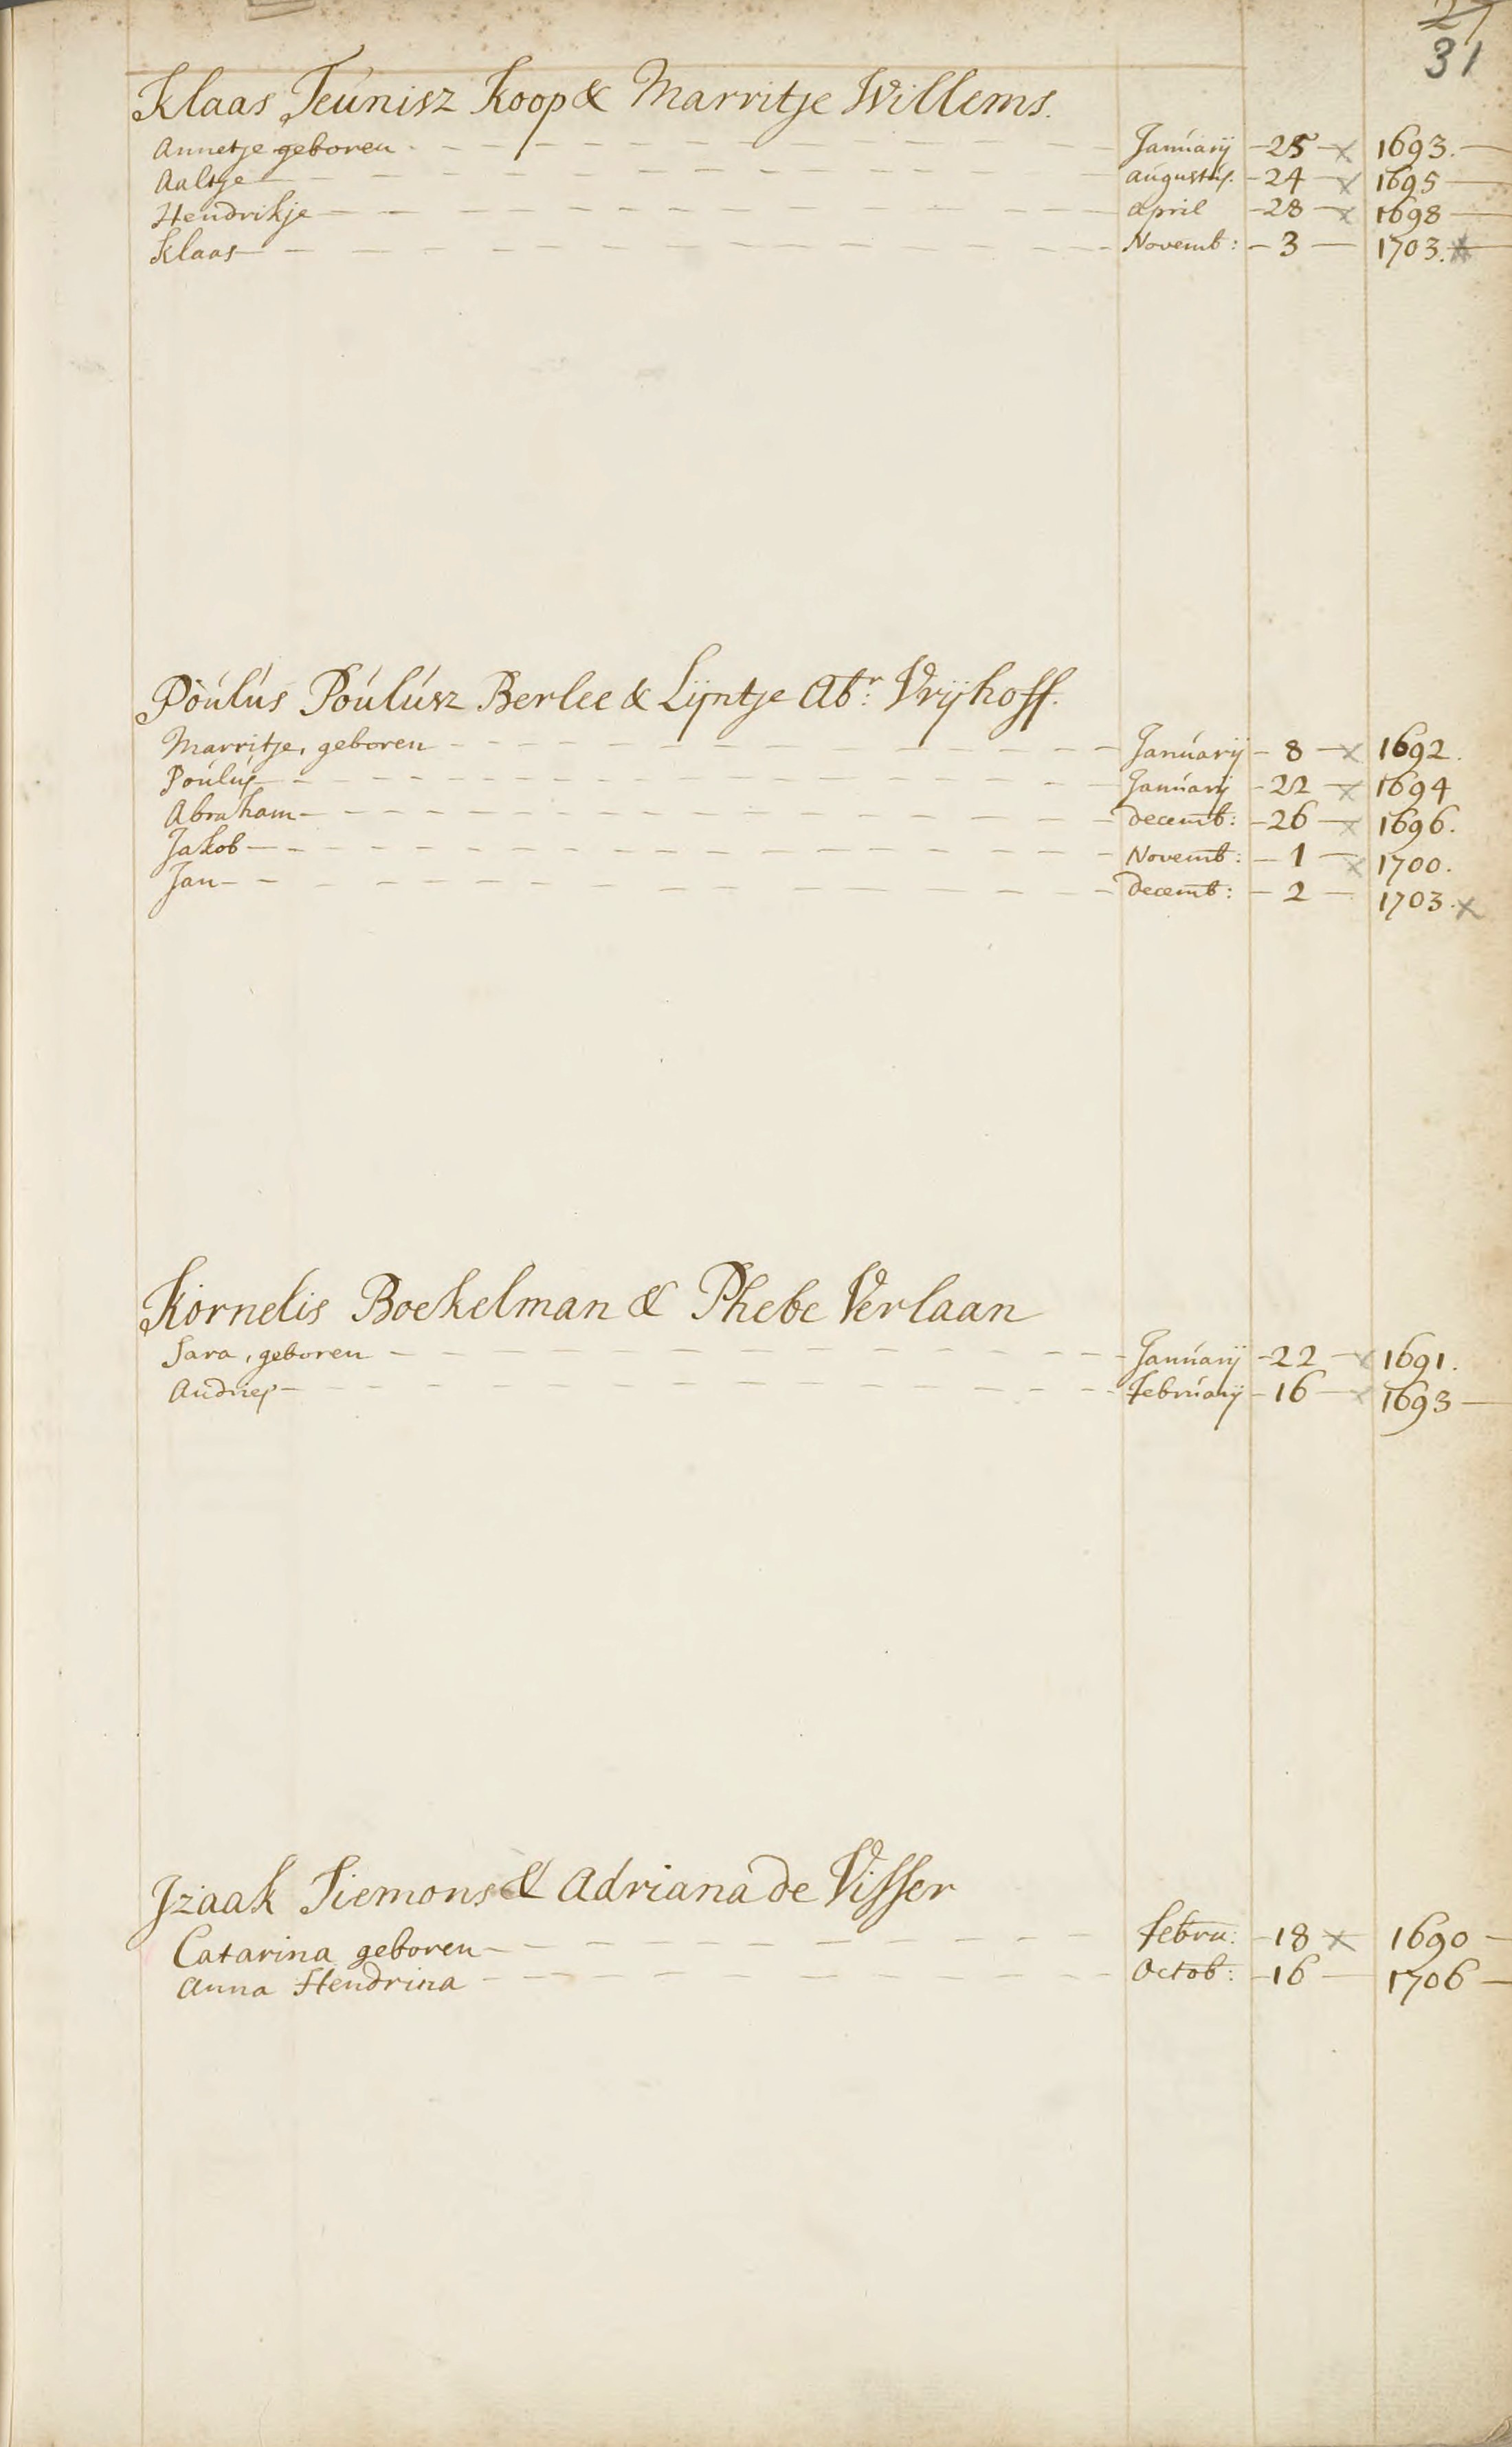 27
31
Klaas Teunisz Koop & Marritje Willems.
Annetje geboren - January - 25 - x 1693. -
Aaltje - augustus. - 24 - x 1695 -
Hendrikje - april - 28 - x 1698 -
Klaas - Novemb: - 3 - 1703. x
Poulus Poulusz Berlee & Lijntje Abr: Vrijhoff.
Marritje, geboren - Januarij - 8 - x 1692.
Poulus - Januarij - 22 - x 1694
Abraham - decemb: - 26 - x 1696.
Jakob - Novemb: - 1 - x 1700.
Jan - decemb: - 2 - 1703. x
Kornelis Boekelman & Phebe Verlaan
Sara, geboren - Januarij - 22 - x 1691.
Andries - februarij - 16 - x 1693 -
Izaak Siemons & Adriana de Visser
Catarina geboren - febru: - 18 x 1690 -
Anna Hendrina - Octob: - 16 - 1706 -